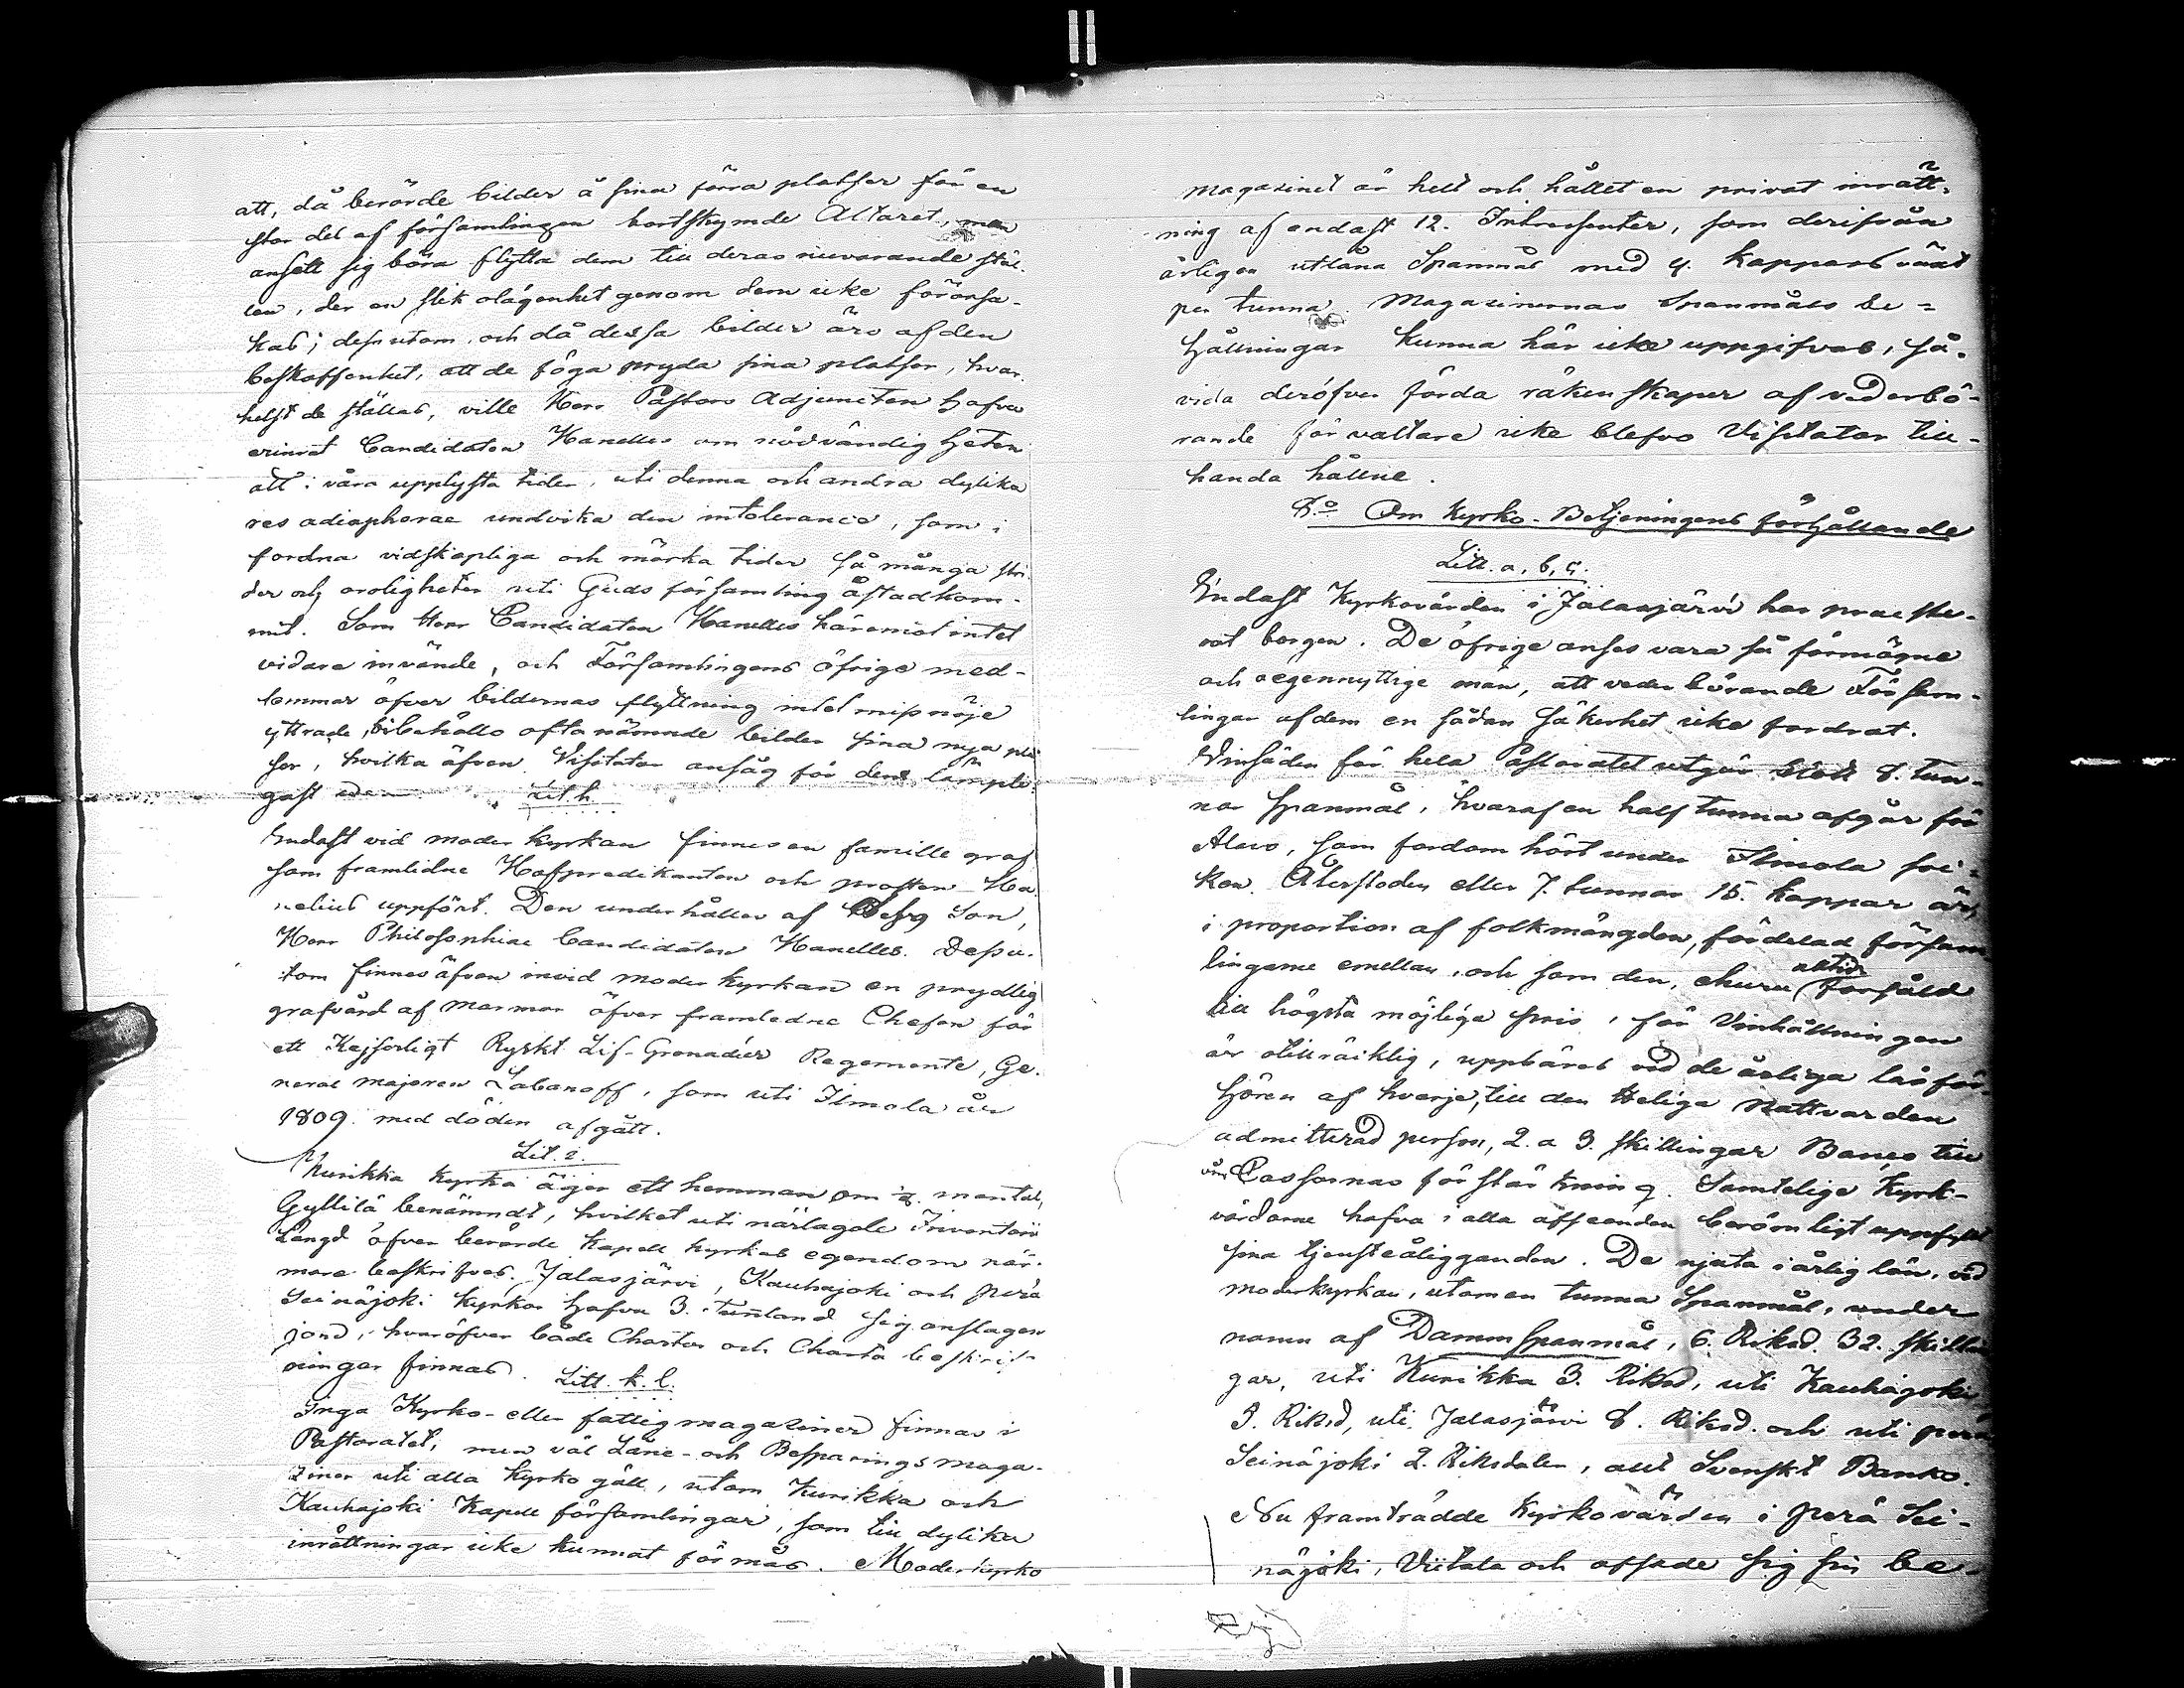 att, då berörde bilder å sina förra platser för en
stor del af församlingen bortskymde Altaret, man
ansett sig böra flytta dem till deras nuvarande stäl-
len, der en slik olägenhet genom dem icke förorsa-
kas; dessutom, och då dessa bilder äro af den
beskaffenhet, att de föga pryda sina platser, hvar-
helst de ställas, ville Herr Pastors Adjuncten hafva
erinrat Candidaten Hanelles om nödvändigheten
att i våra upplysta tider, uti denna och andra dylika
res adiaphorae undvika den intolerance, som i
fordna vidskapliga och mörka tider så många stri-
der och oroligheter uti Guds församling åstadkom-
mit. Som Herr Candidaten Hanelles häremot intet
vidare invände, och Församlingens öfrige med-
lemmar öfver bildernas flyttning intet missnöje
yttrade, bibehållo ofta nämnde bilder sina nya plat-
ser, hvilka äfven Visitator ansåg för dem lämpli-
gast
Lit. h.
Endast vid moder kyrkan finnes en famille graf
som framlidne Hofpredikanten och prosten Ha-
nelius uppfört. Den underhålles af Dess Son,
Herr Philosophiae Candidaten Hanelles. Dessu-
tom finnes äfven invid moder kyrkan en prydlig
grafvård af marmor öfver framledne Chefen för
ett Kejserligt Ryskt Lif-Grenadier Regemente, Ge-
neral majoren Labanoff, som uti Ilmola år
1809. med döden afgått.
Lit. i.
Kurikka kyrka äger ett hemman om mantal,
Gyllilä benämndt, hvilket uti närlagde Inventarii
Längd öfver berörde kapell kyrkas egendom när-
mare beskrifves. Jalasjärvi, Kauhajoki och Perä
Seinäjoki kyrkor hafva 3. tunland sig anslagen
jord, hvaröfver både Chartor och Charta beskrif-
ningar finnas.
Litt. k. l.
Inga Kyrko- eller fattigmagaziner finnas i
Pastoratet, men väl Låne- och Besparings maga-
ziner uti alla kyrko gäll, utom Kurikka och
Kauhajoki Kapell församlingar, som till dylika
inrättningar icke kunnat förmås. Moderkyrko
magazinet är helt och hållet en privat inrätt-
ning af endast 12. Intressenter, som derifrån
årligen utlåna Spannmål med 4. kappars växt
per tunna. Magazinernas Spanmåls be-
hållningar kunna här icke uppgifvas, så-
vida deröfver förda räkenskaper af vederbö-
rande förvaltare icke blefvo Visitator till-
handa hållne.
8.o Om Kyrko-Betjeningens förhållande
Litt. a, b, c.
Endast Kyrkovärden i Jalasjärvi har praeste-
rat borgen. De öfrige anses vara så förmögne
och oegennyttige män, att vederbörande Försam-
lingar af dem en sådan säkerhet icke fordrat.
Vinsäden för hela Pastoratet utgör 8. tun-
nor spanmål, hvaraf en half tunna afgår för
Alavo, som fordom hört under Ilmola soc-
ken. Återstoden eller 7. tunnor 15. kappar är,
i proportion af folkmängden, fördelad försam
lingarne emellan, och som den, ehuru alltid försåld
till högsta möjliga pris, för Vinhållningen
är otillräcklig, uppbäres vid de årliga läsför-
hören af hvarje, till den Heliga Nattvarden
admitterad person, 2. a 3. skillingar Banco till
vin Cassornas förstärkning. Samtelige kyrk-
värdarne hafva i alla afseenden berömligt uppfyllt
sina tjensteåligganden. De njuta i årlig lön, vid
moderkyrkan, utom en tunna Spanmål, under
namn af Damm Spanmål, 6. Riksd. 32. skillin
gar, uti Kurikka 3. Riksd, uti Kauhajoki
3. Riksd, uti Jalasjärvi 8. Riksd. och uti perä
Seinäjoki 2. Riksdaler, allt Svenskt Banko.
Nu framträdde kyrkovärden i perä Sei-
näjoki, Viitala och afsade sig sin be-